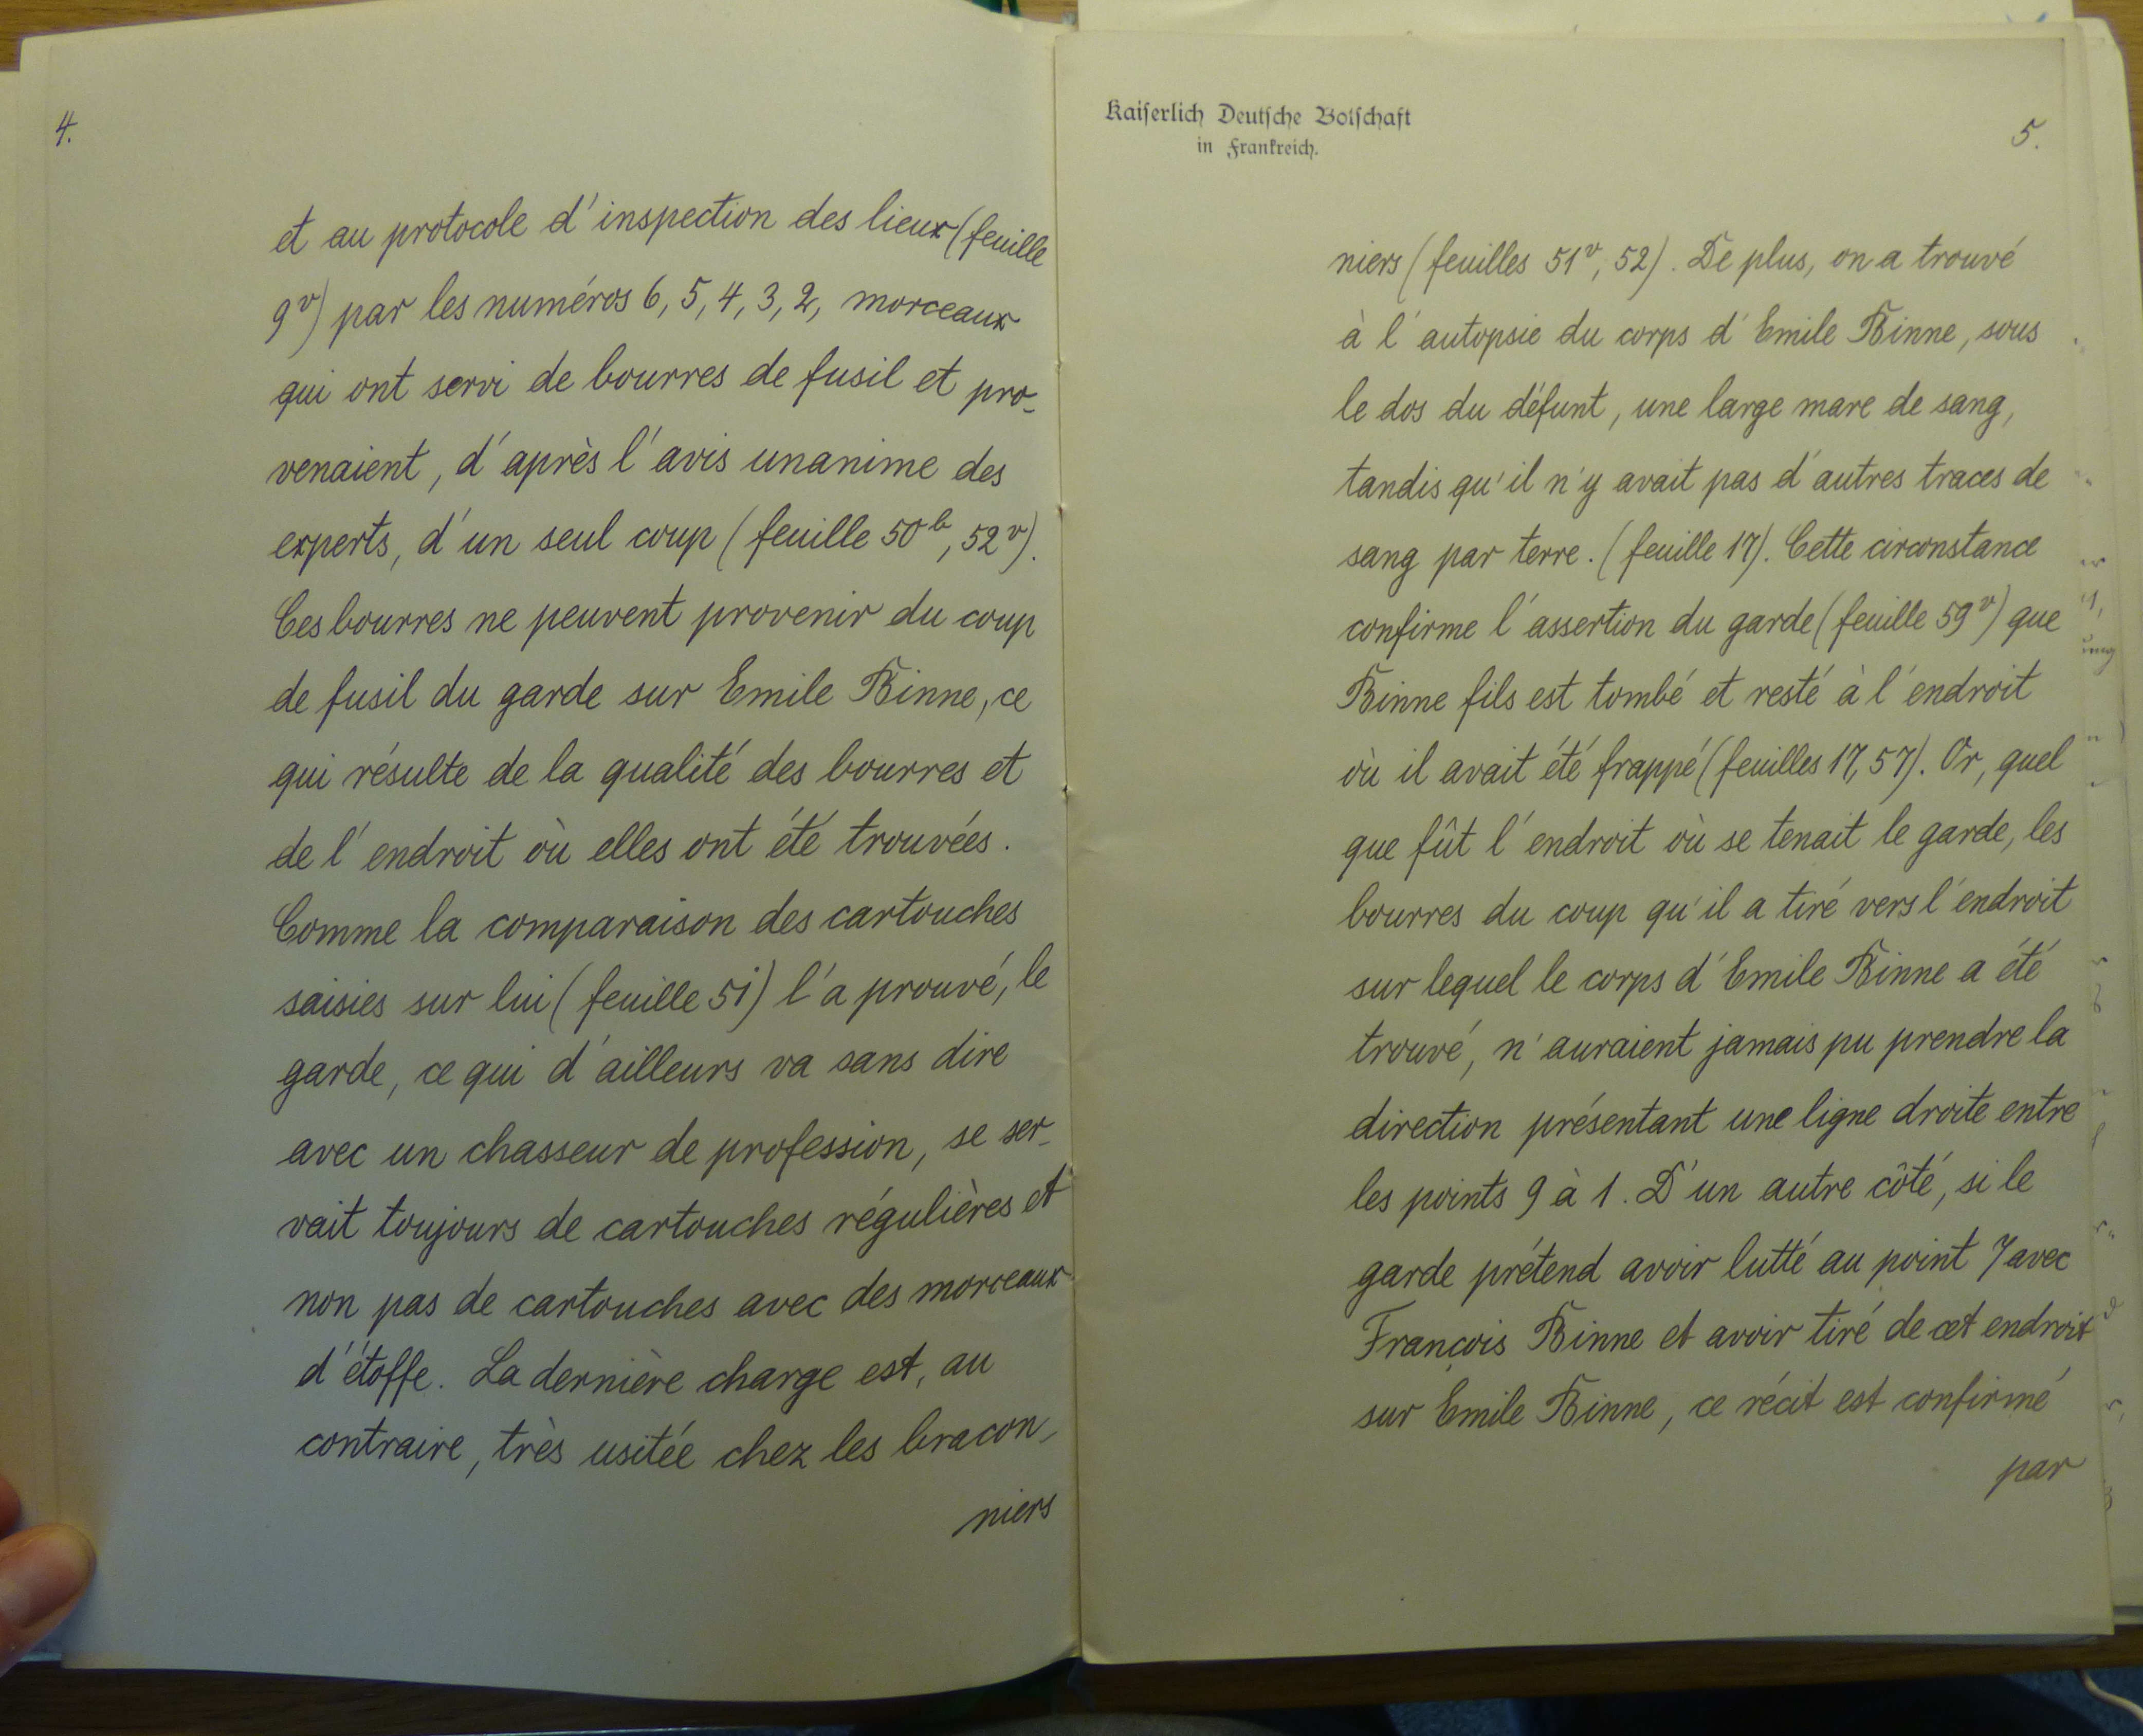 4.
et au protocole d'inspection des lieux (feuille
9v) par les numéros 6, 5, 4, 3, 2, morceaux
qui ont servi de bourres de fusil et pro-
venaient, d'après l'avis unanime des
experts, d'un seul coup (feuille 50b, 52v).
Ces bourres ne peuvent provenir du coup
de fusil du garde sur Emile Binne, ce
qui résulte de la qualité des bourres et
de l'endroit où elles ont été trouvées.
Comme la comparaison des cartouches
saisies sur lui (feuille 51) l'a prouvé, le
garde, ce qui d'ailleurs va sans dire
avec un chasseur de profession, se ser-
vait toujours de cartouches régulières et
non pas de cartouches avec des morceaux
d'étoffe. La dernière charge est, au
contraire, très usitée chez les bracon-
niers
Kaiserlich Deutsche Botschaft
in Frankreich.
5.
niers (feuilles 51v, 52). De plus, on a trouvé
à l'autopsie du corps d'Emile Binne, sous
le dos du défunt, une large mare de sang,
tandis qu'il n'y avait pas d'autres traces de
sang par terre. (feuille 17). Cette circonstance
confirme l'assertion du garde (feuille 59v) que
Binne fils est tombé et resté à l'endroit
où il avait été frappé (feuilles 17, 57). Or, quel
que fût l'endroit où se tenait le garde, les
bourres du coup qu'il a tiré vers l'endroit
sur lequel le corps d'Emile Binne a été
trouvé, n'auraient jamais pu prendre la
direction présentant une ligne droite entre
les points 9 à 1. D'un autre côté, si le
garde prétend avoir lutté au point 7 avec
François Binne et avoir tiré de cet endroit
sur Emile Binne, ce récit est confirmé
par